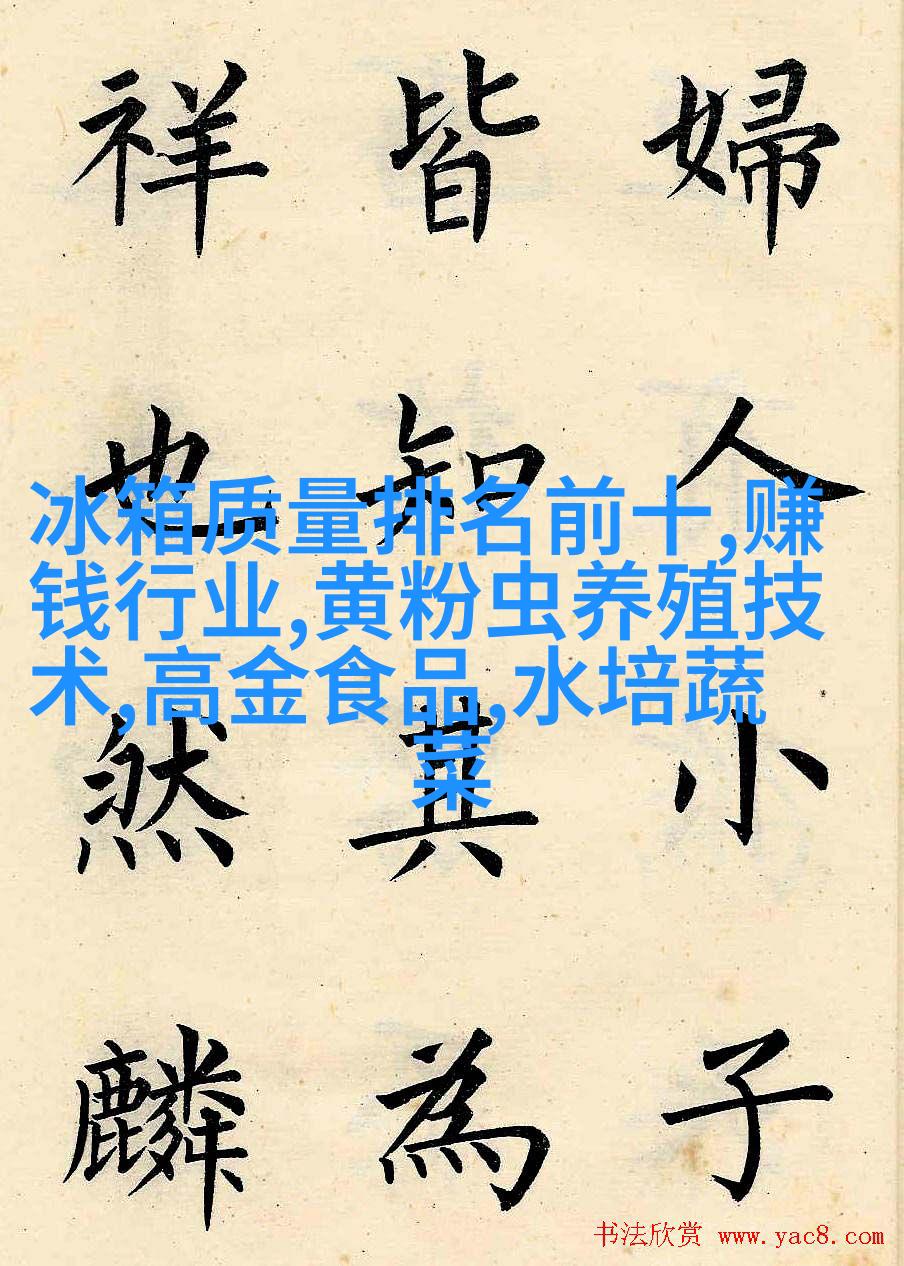 婦人小子
皆知其為
祥也然麟
冰箱质量排名前十,赚
钱行业,黄粉虫养殖技
术,高金食品,水培蔬
菜
书法欣赏 www.yac8.com